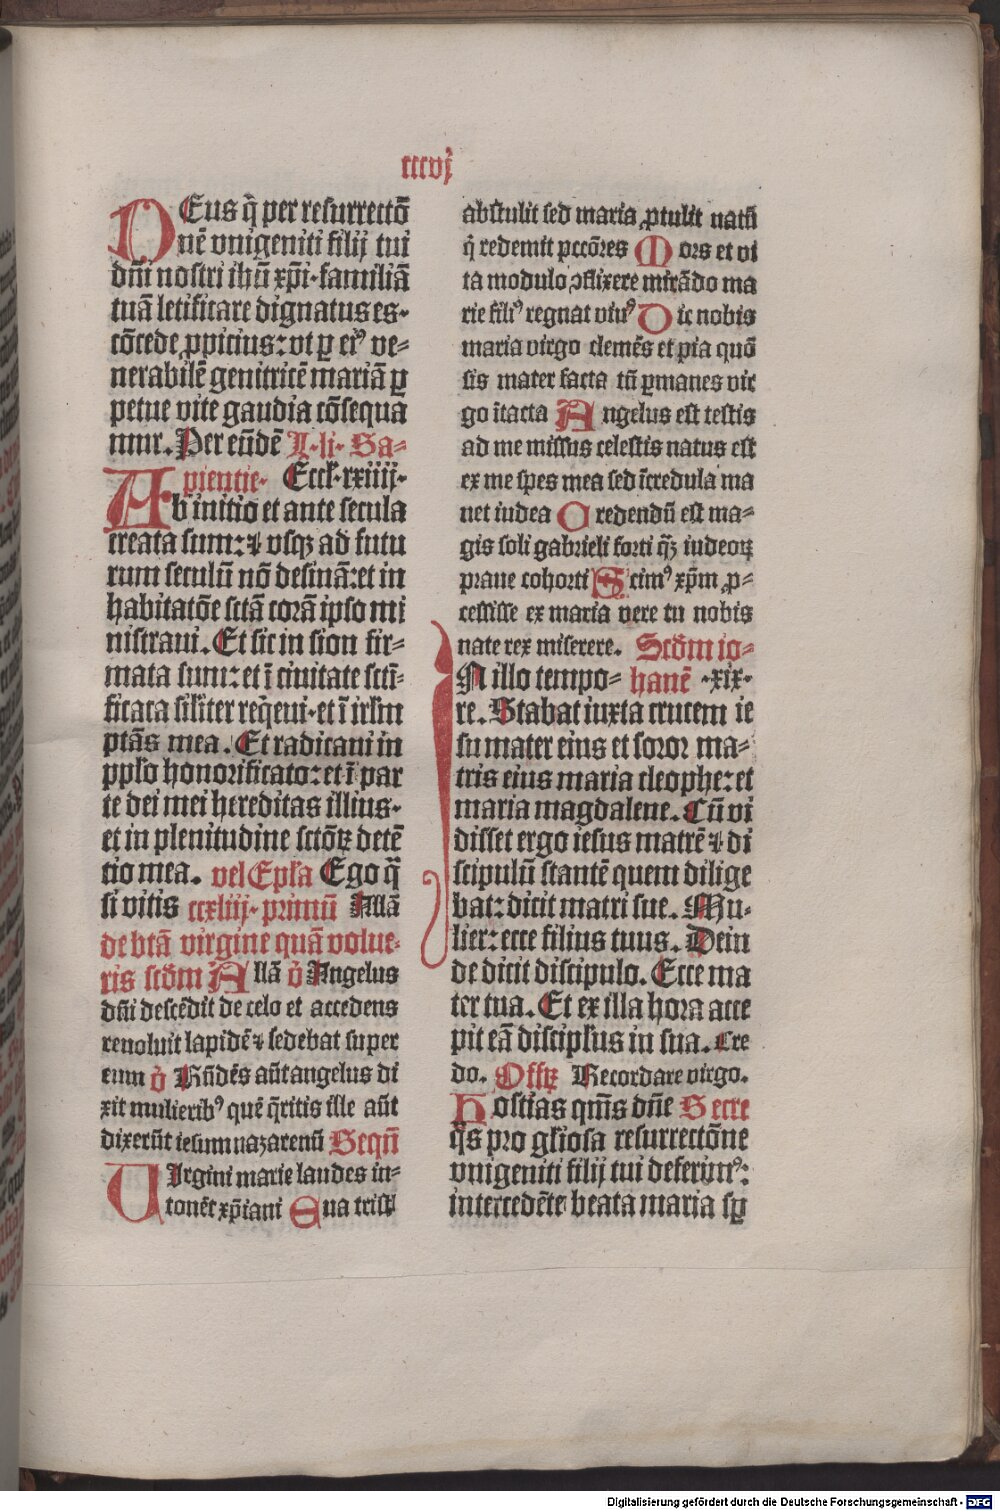 cccvj
DEus q̄ per resurrectō
nē vnigeniti filij tui
dn̄i nostri ihū xp̄i·familiā
tuā letificare dignatus es·
cōcede ꝓpicius: vt ꝑ eiꝰ ve-
nerabilē genitricē mariā ꝑ
petue vite gaudia cōsequa
mur. Per eūdē L·li· Sa-
pientie· Eccī·xxiiij·
Ab initio et ante secula
creata sum: ⁊ vsqꝫ ad futu
rum seculū nō desinā: et in
habitatōe sctā corā ipso mi
nistraui. Et sic in sion fir-
mata sum: et ī ciuitate sctī-
ficata sil̄iter req̄eui·et ī irl̄m
ptās mea. Et radicaui in
pplo honorificato: et ī par
te dei mei hereditas illius·
et in plenitudine sctōꝝ detē
tio mea. vel Epl̄a Ego q̄
si vitis ccxliij·primū Allā
de btā virgine quā volue-
ris scd̄m Allā v̄ Angelus
dn̄i descēdit de celo et accedens
reuoluit lapidē ⁊ sedebat super
eum v̄ Rn̄dēs aūt angelus di
xit mulieribꝰ quē q̄ritis ille aūt
dixerūt iesum nazarenū Seqū
VIrgini marie laudes in-
tonēt xp̄iani Eua tristī
abstulit sed maria ꝓtulit natū
q̄ redemit pccōres Mors et vi
ta modulo ꝯflixere mirādo ma
rie filiꝰ regnat viuꝰ Dic nobis
maria virgo clemēs et pia quō
sis mater facta tū ꝑmanes vir
go ītacta Angelus est testis
ad me missus celestis natus est
ex me spes mea sed īcredula ma
net iudea Credendū est ma-
gis soli gabrieli forti qꝫ iudeoꝝ
praue cohorti Scimꝰ xp̄m ꝓ-
cessisse ex maria vere tu nobis
nate rex miserere. Scd̄m io-
IN illo tempo- hanē ·xix·
re. Stabat iuxta crucem ie
su mater eius et soror ma-
tris eius maria cleophe: et
maria magdalene. Cū vi
disset ergo iesus matrē ⁊ di
scipulū stantē quem dilige
bat: dicit matri sue. Mu-
lier: ecce filius tuus. Dein
de dicit discipulo. Ecce ma
ter tua. Et ex illa hora acce
pit eā discipl̄us in sua. Cre
do. Offꝝ Recordare virgo.
Hostias qm̄s dn̄e Secre
q̄s pro gl̄iosa resurrectōne
vnigeniti filij tui deferimꝰ:
intercedēte beata maria sꝑ
Digitalisierung gefördert durch die Deutsche Forschungsgemeinschaft - DFG